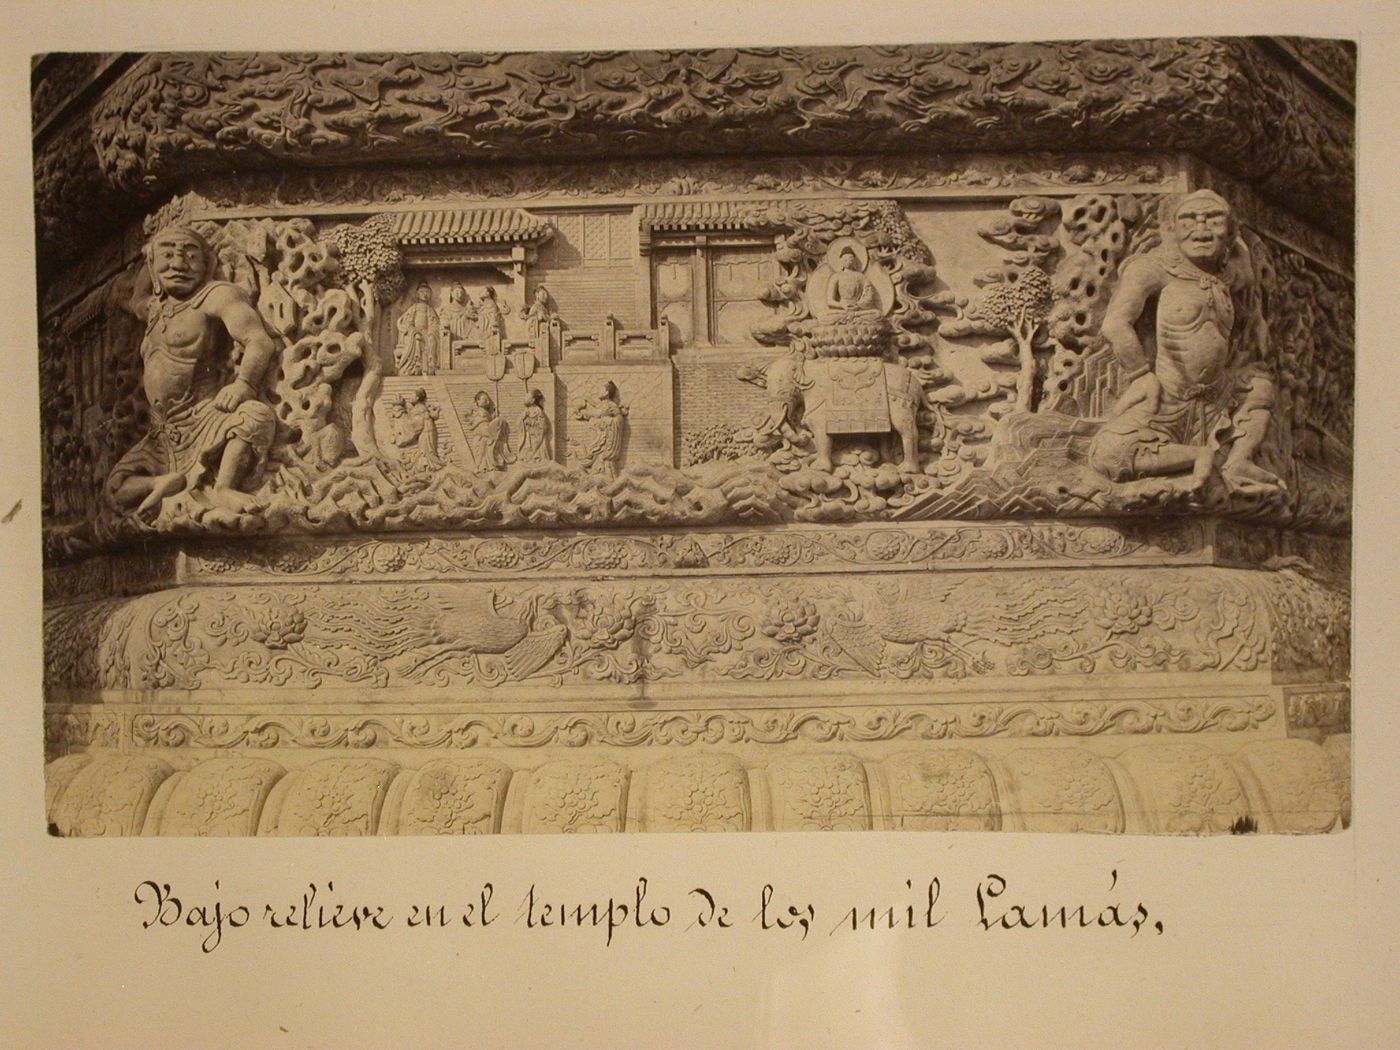 Bajo relieve en el templo de los mil Lamás.